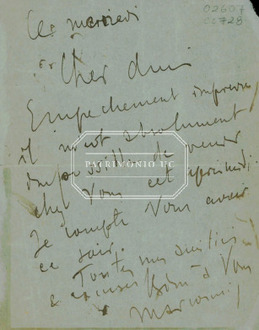 02607
00728
Ce mercredi
Cher Ami
Empêchement imprévu
il m'est absolument
impossible de venir
chez vous cet après midi.
PATRIMONIO UC
Je compte vous avoir
ce soir.
Toutes mes
excuses à vous